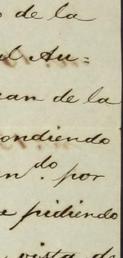 o de la
l Au=
ean de la
ondiendo
n.do por
e pidiendo
vista de